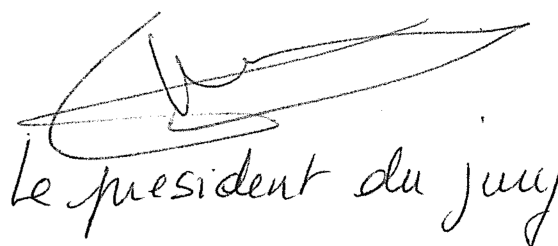 Le president du jury